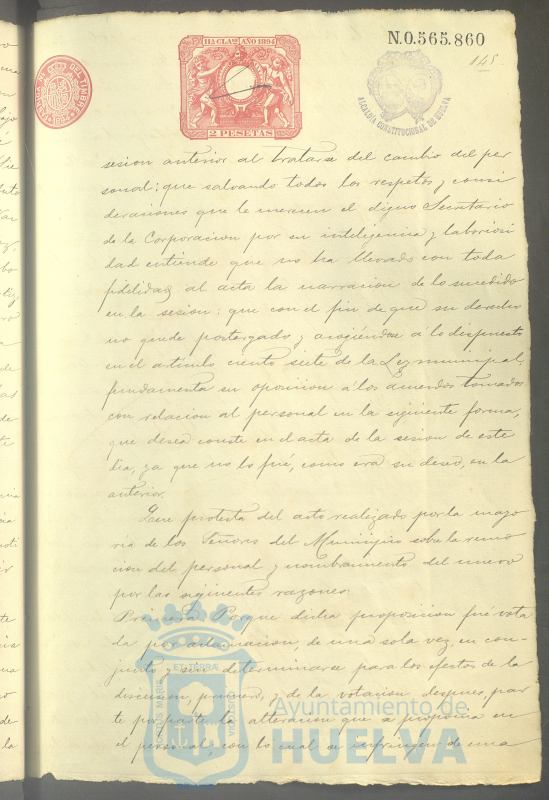 11ª CLASE AÑO 1894
2 PESETAS
N.0.565.860
145
ALCALDIA CONSTITUCIONAL DE HUELVA
sesion anterior al tratarse del cambio del per
sonal: que salvando todos los respetos y consi
deraciones que le merecen el digno Secretario
de la Corporacion por su inteligencia y laboriosi
dad entiende que no ha llevado con toda
fidelidad al acta la narracion de lo sucedido
en la sesion: que con el fin de que su derecho
no quede postergado y acogiéndose á lo dispuesto
en el articulo ciento siete de la Ley municipal,
fundamenta su oposicion á los acuerdos tomados
con relacion al personal en la siguiente forma,
que desea conste en el acta de la sesion de este
dia, ya que no lo fué, como era su deseo, en la
anterior.
Que protesta del acto realizado por la mayo
ria de los Señores del Municipio sobre la remo
cion del personal y nombramiento del nuevo
por las siguientes razones:
Primera: Porque dicha proposicion fué vota
da por aclamacion, de una sola vez, en con-
junto y sin determinarse para los efectos de la
discusion, primero, y de la votacion despues, par
te por parte la alteracion que se proponia en
el personal, con lo cual se infringen de una
Ayuntamiento de
HUELVA